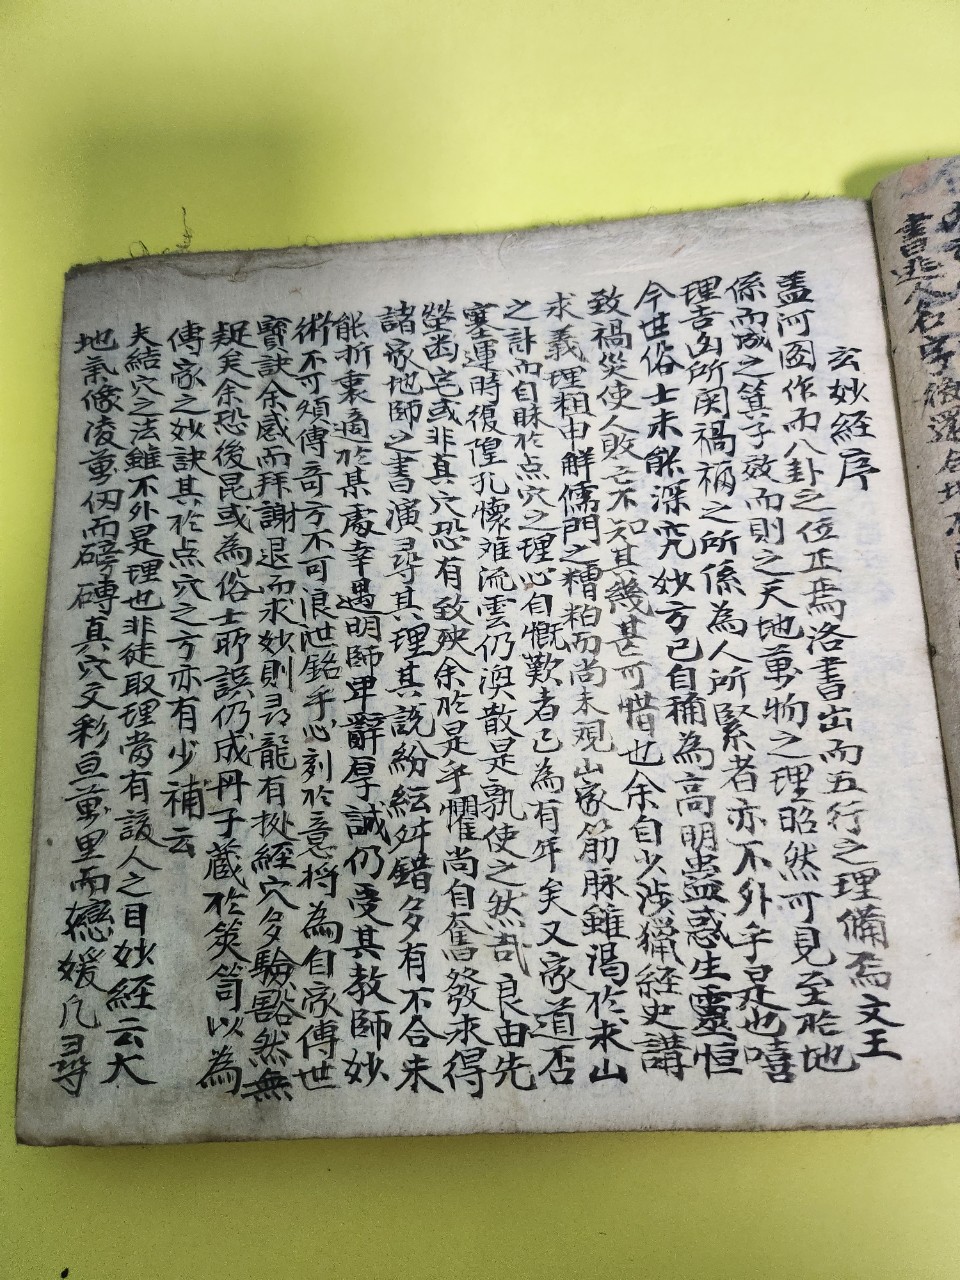 玄妙經序
盖河圖作而八卦之位正焉洛書出而五行之理備焉文王
係而成之箕子效而則之天地萬物之理昭然可見至於地
理吉凶所関禍福之所係為人所緊者亦不外乎是也嘻
今世俗士未能深究妙方已自稱為高明蛊惑生靈恒
致禍災使人敗亡不知其幾甚可惜也余自少涉獵經史講
求義理粗中解儒門之糟粕而尚未視山家筋脉雖渴於求山
之訃而自昧於点穴之理心自慨歎者已為有年矣又家道否
蹇運時復隍扤懷难流雲仍渙散是孰使之然哉良由先
塋凶宅或非真穴恐有致殃余於是乎懼尚自奮發求得
諸家地師之書演尋其理其說紛紜舛錯多有不合未
能折衷適於某處幸遇明師卑辭厚誠仍受其教師妙
術不可煩傳奇方不可浪泄銘乎心刻於意將為自家傳世
寶訣余感而拜謝退而求妙則尋龍有㧞經穴多驗豁然無
疑矣余恐後昆或為俗士所誤仍成丹子藏於筴笥以為
傳家之妙訣其於点穴之方亦有少補云
夫結穴之法雖不外是理也非徒取理當有該人之目妙經云大
地氣像凌萬仞而磅礡真穴文彩亘萬里而戀媛凡尋
書
人名字後還